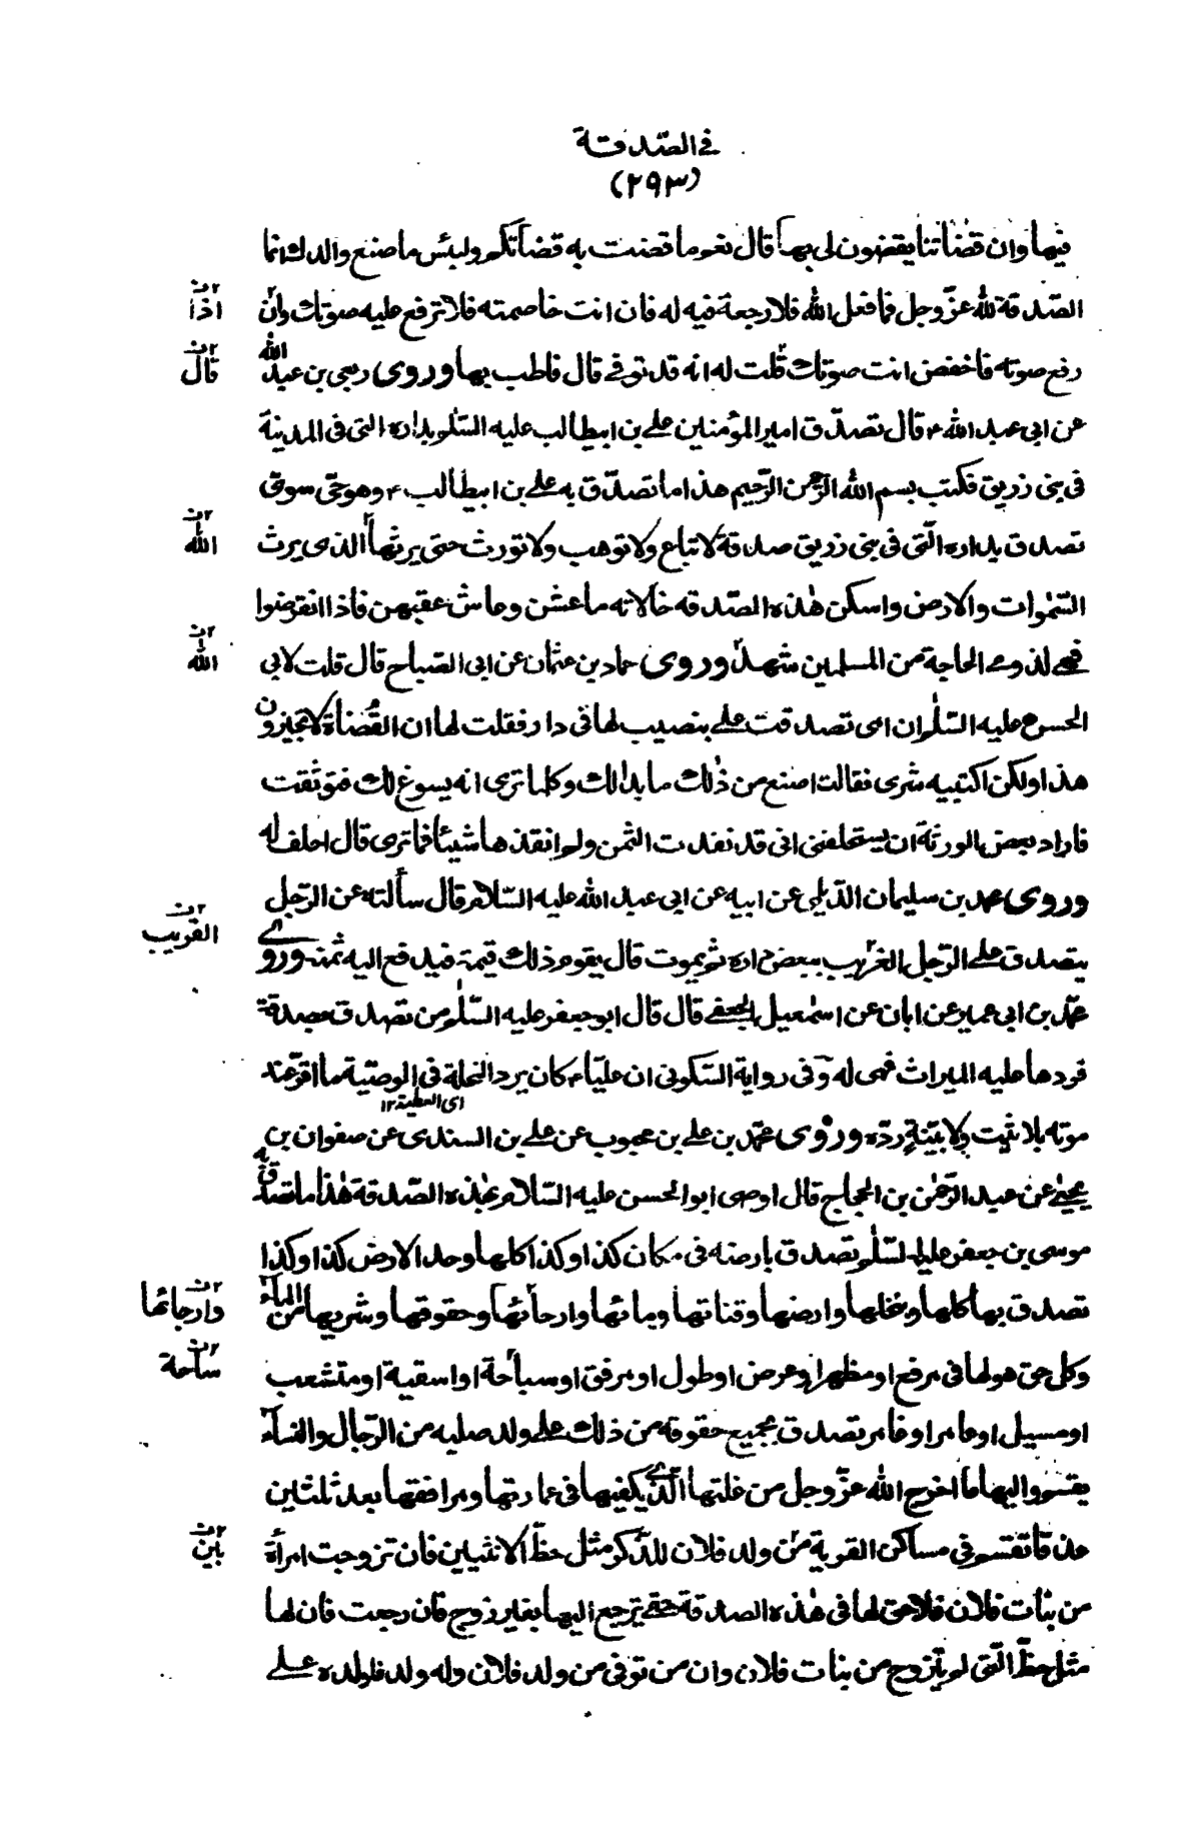 في الصّدقة
(٢٩٣)
فيها وان قضاتنا يقضون لى بها قال نعم ما قضت به قضاتكم ولبئس ما صنع والدك انما
الصّدقة لله عزّ وجل فما فعل الله فلا رجعة فيه له فان انت خاصمته فلا ترفع عليه صوتك وان
اذا
رفع صوته فاخفض انت صوتك قلت له انه قد توفي قال فاطب بها وروى ربعي بن عبد الله
قال
عن ابى عبد الله ع قال تصدّق امير المؤمنين علي بن ابيطالب عليه السّلم بداره التى فى المدينة
فى بنى زريق فكتب بسم الله الرّحمن الرّحيم هذا ما تصدّق به علي بن ابيطالب ع وهو حيّ سوىّ
تصدق بداره الّتى فى بنى زريق صدقة لا تباع ولا توهب ولا تورث حتى يرثها الذى يرث
الله
السّمٰوات والارض واسكن هٰذه الصّدقه خالاته ما عشن وعاش عقبهن فاذا انقرضوا
فهي لذوى الحاجة من المسلمين شهد وروى حماد بن عثمان عن ابى الصّباح قال قلت لابى
الله
الحسن ع عليه السّلٰم ان امى تصدقت علي بنصيب لها فى دار فقلت لها ان القُضاة لا يجيزون
هذا ولكن اكتبيه شرى فقالت اصنع من ذٰلك ما بدا لك وكلما ترى انه يسوغ لك فتوثقت
فاراد بعض الورثة ان يستحلفنى انى قد نقدت الثمن ولم انقدها شيئا فما ترى قال احلف له
وروى محمد بن سليمان الدّيلمي عن ابيه عن ابى عبد الله عليه السّلام قال سألته عن الرّجل
يتصدق علي الرّجل الغريب ببعض داره ثم يموت قال يقوم ذلك قيمة فيدفع اليه ثمنه وروى
القريب
محمّد بن ابى عمير عن ابان عن اسمٰعيل الجعفي قال قال ابو جعفر عليه السّلٰم من تصدق بصدقة
فردها عليه الميراث فهى له وفى رواية السّكونى ان عليّا ع كان يرد النحلة فى الوصيّة ما اقرّ عند
اى العطية ١٢
موته بلا ثبت ولا بيّنةٍ ردّه وروى محمّد بن علي بن محبوب عن علي بن السندى عن صفوان بن
يحيٰى عن عبد الرّحمٰن بن الحجاج قال اوصى ابو الحسن عليه السّلام بهٰذه الصّدقة هٰذا ما تصدق به
موسى بن جعفر عليه السّلٰم تصدق بارضه فى مكان كذا وكذا كلها وحد الارض كذا وكذا
تصدق بها كلها ونخلها وارضها وقناتها ومائها وارجائها وحقوقها وشربها من المآء
وارجائها
وكل حق هو لها فى مرفع او مظهر او عرض او طول او مرفق او سباحة او اسقية او متشعب
ساحة
او مسيل او عامر او غامر تصدق بجميع حقوقه من ذلك علي ولد صلبه من الرّجال والنسآء
يقسم واليها ما اخرج الله عزّ وجل من غلتها الّذى يكفيها فى عمارتها ومرافقها بعد ثلٰثين
عذقا تقسم فى مساكن القرية من ولد فلان للذّكر مثل حظّ الانثيين فان تزوجت امرأة
بين
من بنات فلان فلا حق لها فى هٰذه الصدقة حتّى ترجع اليها بغير زوج فان رجعت فان لها
مثل حظّ الّتى لم يتزوج من بنات فلان وان من توفى من ولد فلان وله ولد فلولده علي